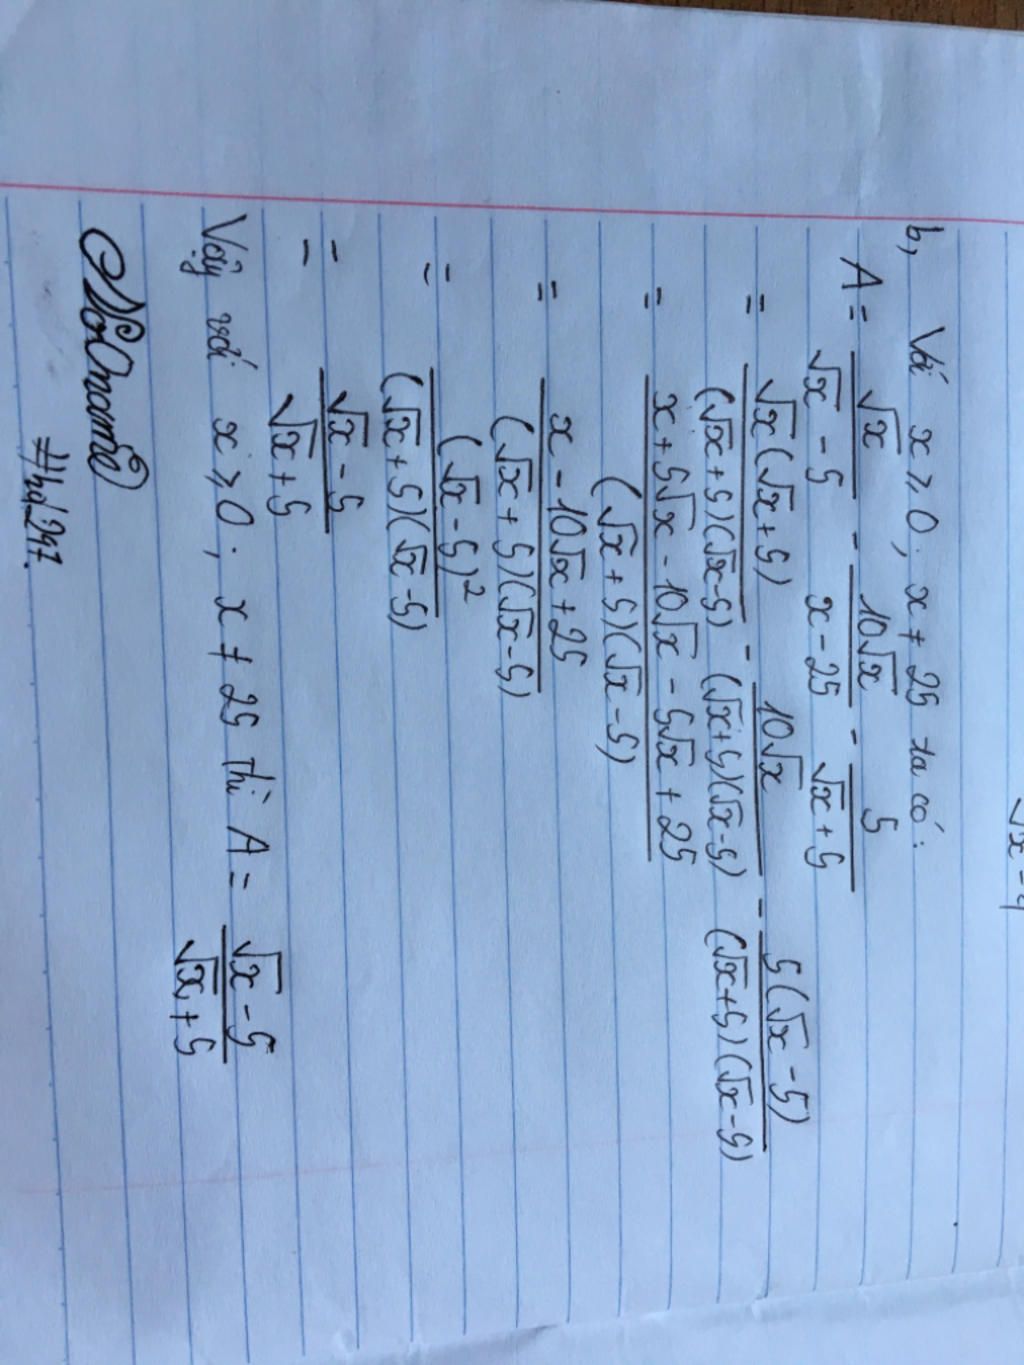 √x - 4
b, Với x ≥ 0; x ≠ 25 ta có:
A = √x / (√x - 5) - 10√x / (x - 25) - 5 / (√x + 5)
= √x(√x + 5) / (√x + 5)(√x - 5) - 10√x / (√x + 5)(√x - 5) - 5(√x - 5) / (√x + 5)(√x - 5)
= x + 5√x - 10√x - 5√x + 25 / (√x + 5)(√x - 5)
= x - 10√x + 25 / (√x + 5)(√x - 5)
= (√x - 5)² / (√x + 5)(√x - 5)
= √x - 5 / √x + 5
Vậy với x ≥ 0; x ≠ 25 thì A = √x - 5 / √x + 5
NoName
#hd247.